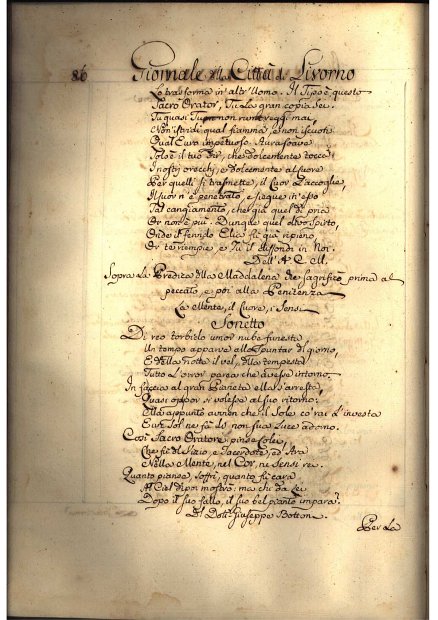 86 Giornale della Città di Livorno
Lo trasforma in altr'Uomo. Il Tipo è questo
Sacro Orator, Tu la gran copia sei.
Tu quasi Tuon non rumoreggi mai,
Non stridi qual fiamma, e non iscuoti
Qual Euro impetuoso. Aura soave
Solo è il tuo dir, che dolcemente tocca
I nostri orecchi, e dolcemente al cuore
Per quelli si trasmette, il Cuor l'accoglie,
Il cuor n'è penetrato, e siegue in esso
Tal cangiamento, che già quel di pria
Or non è più. Dunque quel divo Spirto,
Onde il fervido Elia fù già ripieno
Or te riempie, e Tu il difondi in Noi.
Dell' A. C. M.
Sopra la Predica della Maddalena che sagrificò prima al
peccato, e poi alla Penitenza
La Mente, il Cuore, i Sensi
Sonetto
Di reo torbido umor nube funesta
Un tempo apparve allo spuntar di giorno,
E della notte il vel, della tempesta
Tutto l'orror parea che avesse intorno.
In faccia al gran Pianeta ella s'arresta
Quasi oppor si volesse al suo ritorno:
Ma appunto avvien che il Sole co' rai l'investa
E un Sol ne fà di sua Luce adorno.
Così Sacro Oratore pinse Colei,
Che fù del Vizio, e Sacerdote, ed Ara
Nella Mente, nel Cor, ne Sensi rei.
Quanto pianse, soffrì, quanto fù cara
Al Ciel di poi mostrò: ma chi da Lei
Dopo il suo fallo, il suo bel pianto impara?
Del Dott. Giuseppe Botton
Per la